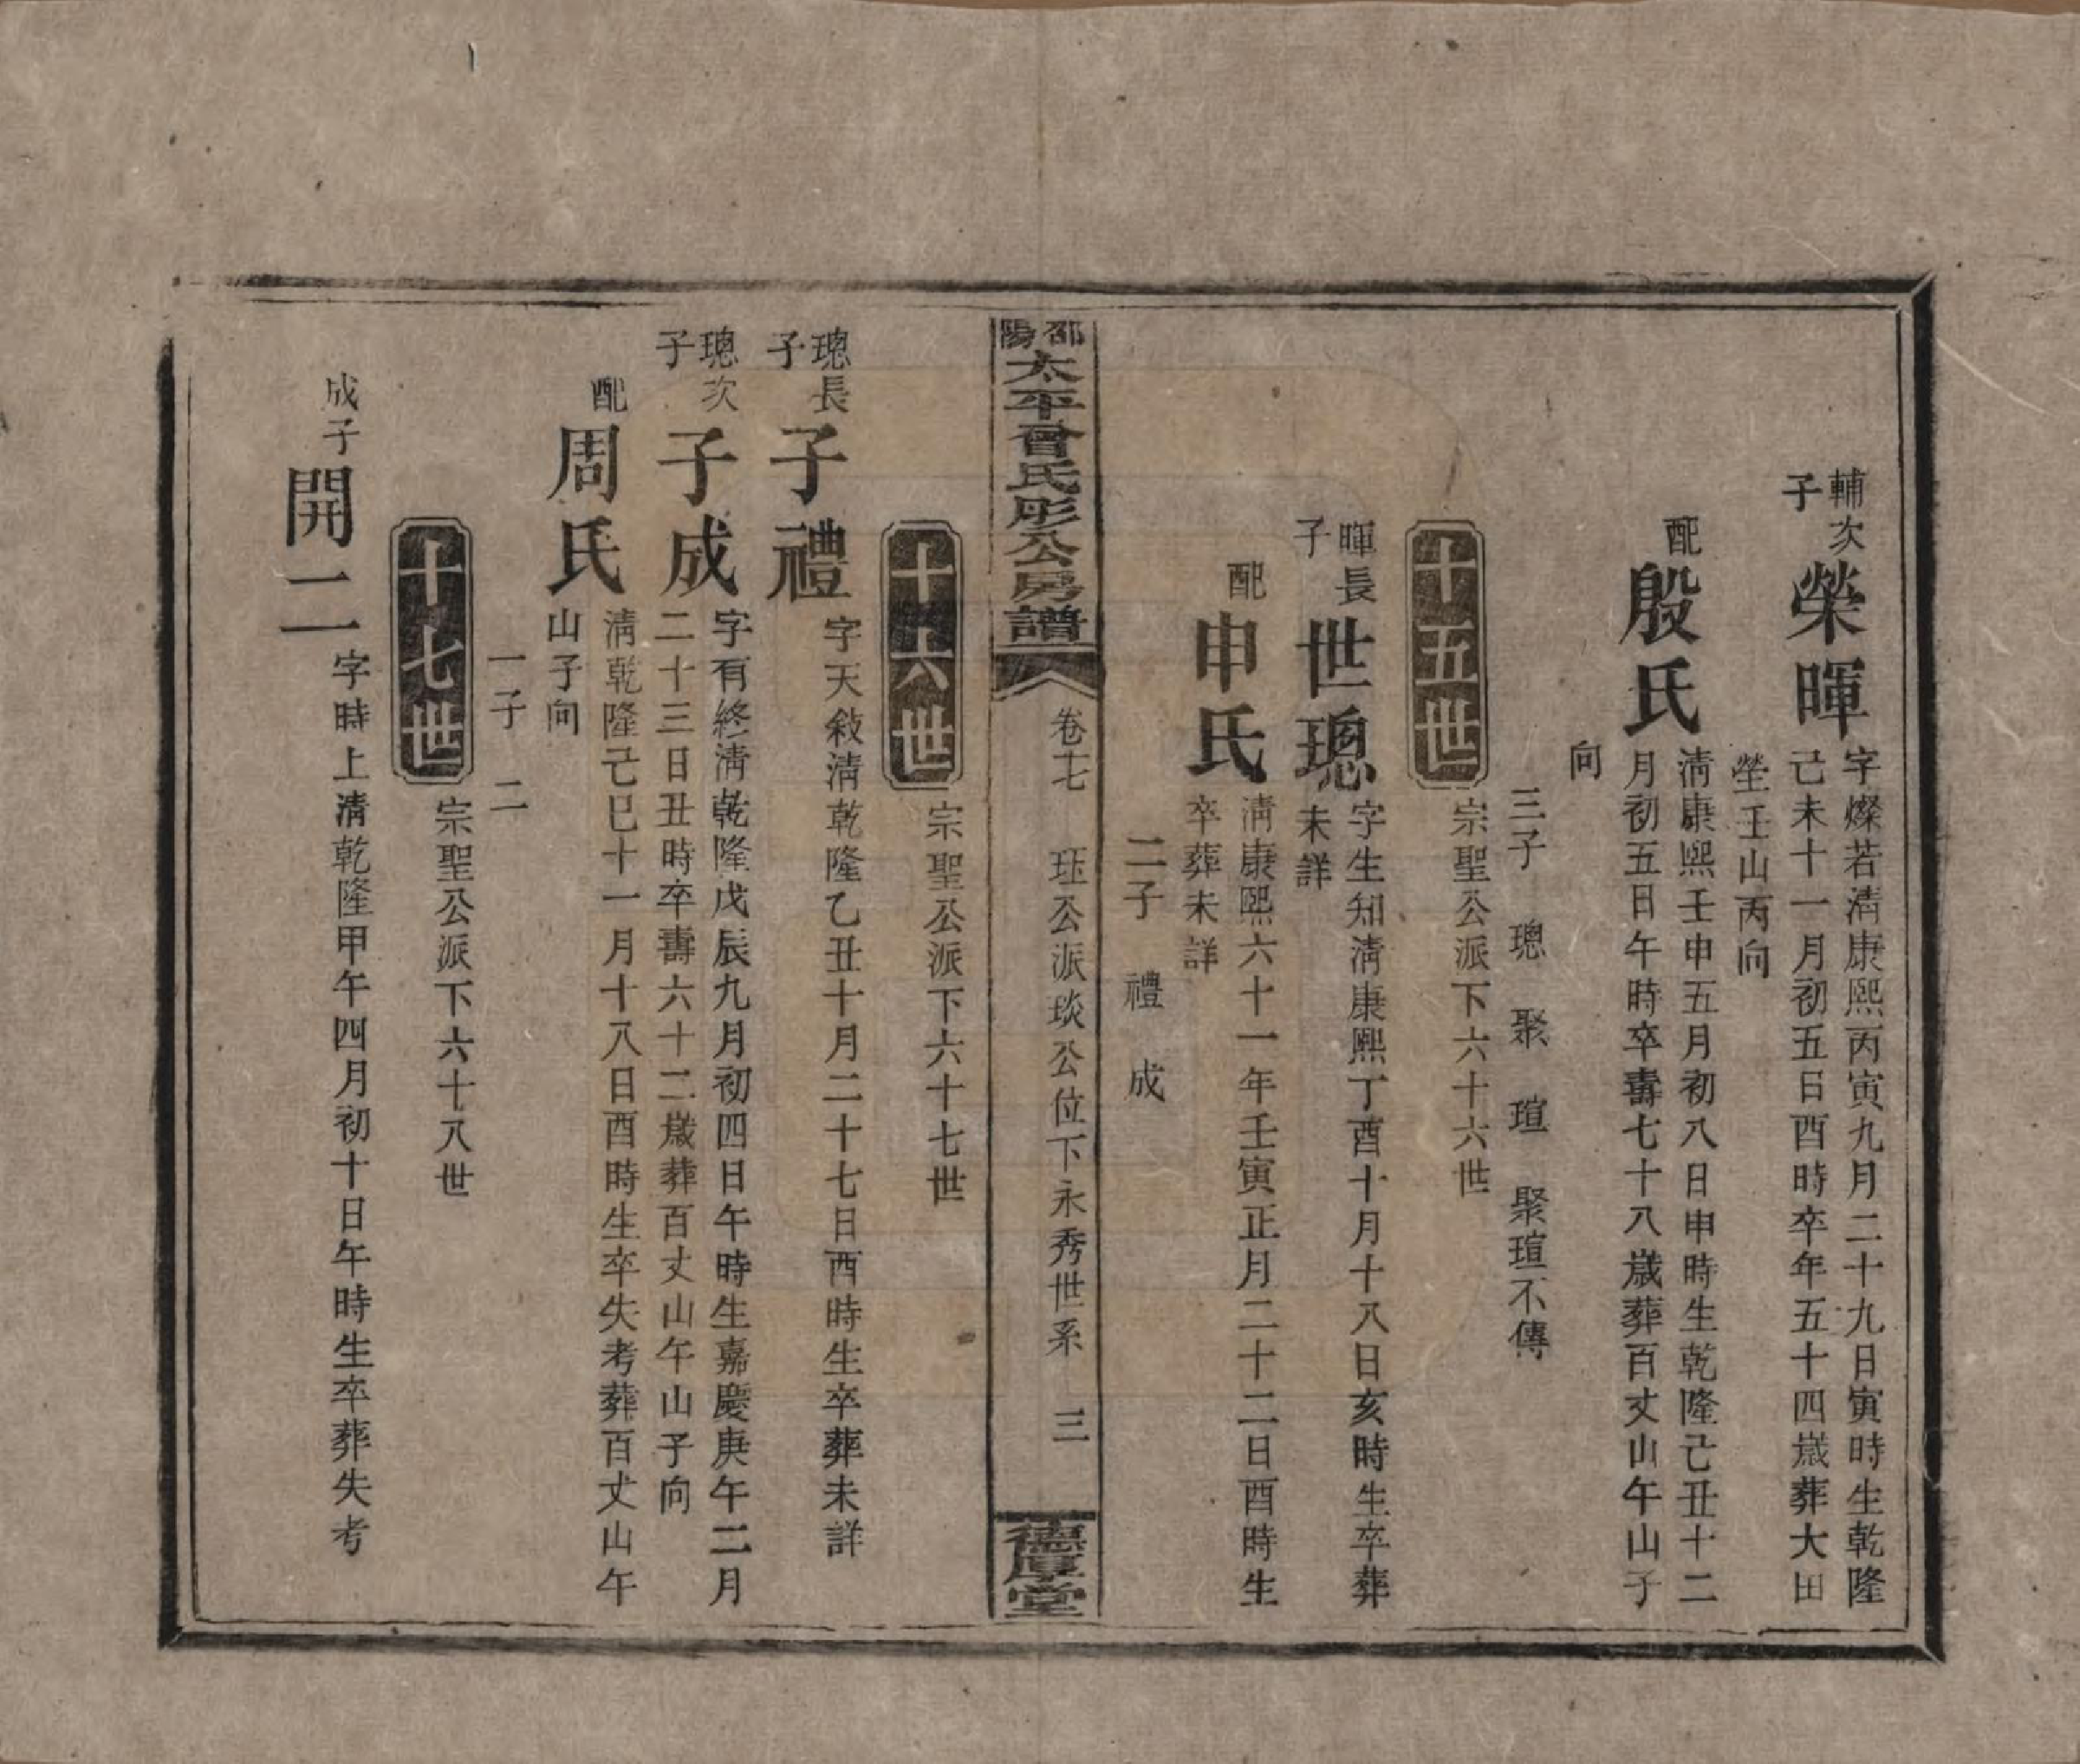 輔次子
榮暉
字燦若清康熙丙寅九月二十九日寅時生乾隆
己未十一月初五日酉時卒年五十四歲葬大田
塋壬山丙向
配
殷氏
清康熙壬申五月初八日申時生乾隆己丑十二
月初五日午時卒壽七十八歲葬百丈山午山子
向
三子 璁 聚 瑄 聚瑄不傳
十五世
宗聖公派下六十六世
暉長子
世璁
字生知清康熙丁酉十月十八日亥時生卒葬
未詳
配
申氏
清康熙六十一年壬寅正月二十二日酉時生
卒葬未詳
二子 禮 成
邵陽太平曾氏彤公房譜
卷七 珏公派琰公位下永秀世系 三
德厚堂
十六世
宗聖公派下六十七世
璁長子
子禮
字天敍清乾隆乙丑十月二十七日酉時生卒葬未詳
璁次子
子成
字有終清乾隆戊辰九月初四日午時生嘉慶庚午二月
二十三日丑時卒壽六十二歲葬百丈山午山子向
配
周氏
清乾隆己巳十一月十八日酉時生卒失考葬百丈山午
山子向
一子 二
十七世
宗聖公派下六十八世
成子
開二
字時上清乾隆甲午四月初十日午時生卒葬失考